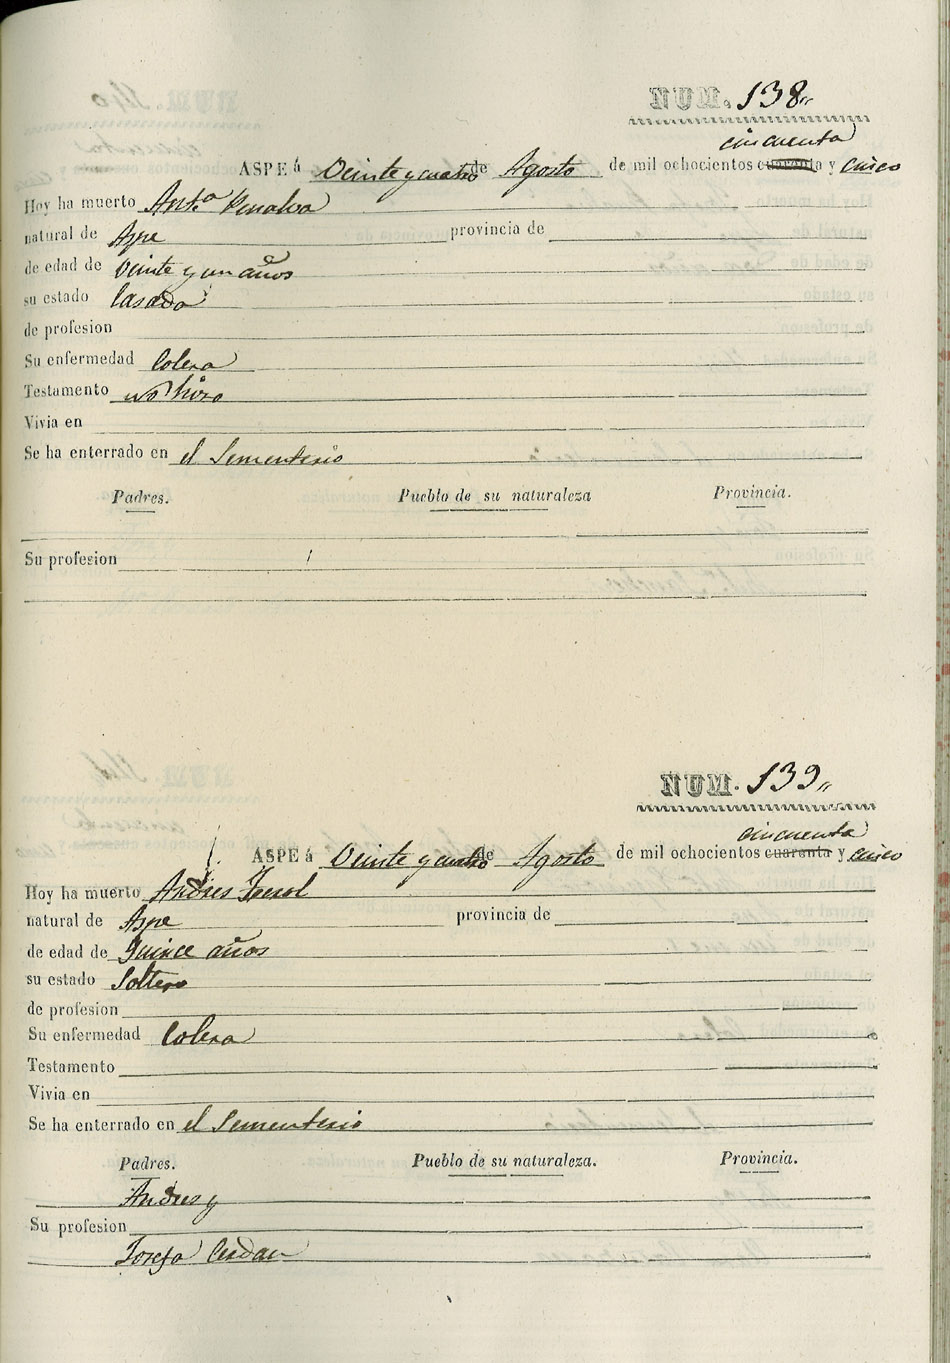 NUM. 138
cincuenta
ASPE á Veinte y cuatro de Agosto de mil ochocientos cuarenta y cinco
Hoy ha muerto Ant.ª Penalva
natural de Aspe provincia de
de edad de Veinte y un años
su estado Casada
de profesion
Su enfermedad Colera
Testamento no hizo
Vivia en
Se ha enterrado en el Sementerio
Padres. Pueblo de su naturaleza Provincia.
Su profesion
NUM. 139
cincuenta
ASPE á Veinte y cuatro de Agosto de mil ochocientos cuarenta y cinco
Hoy ha muerto Andres
natural de Aspe provincia de
de edad de Quince años
su estado Soltero
de profesion
Su enfermedad Colera
Testamento
Vivia en
Se ha enterrado en el Sementerio
Padres. Pueblo de su naturaleza. Provincia.
Andres y
Su profesion
Josefa Cerdan